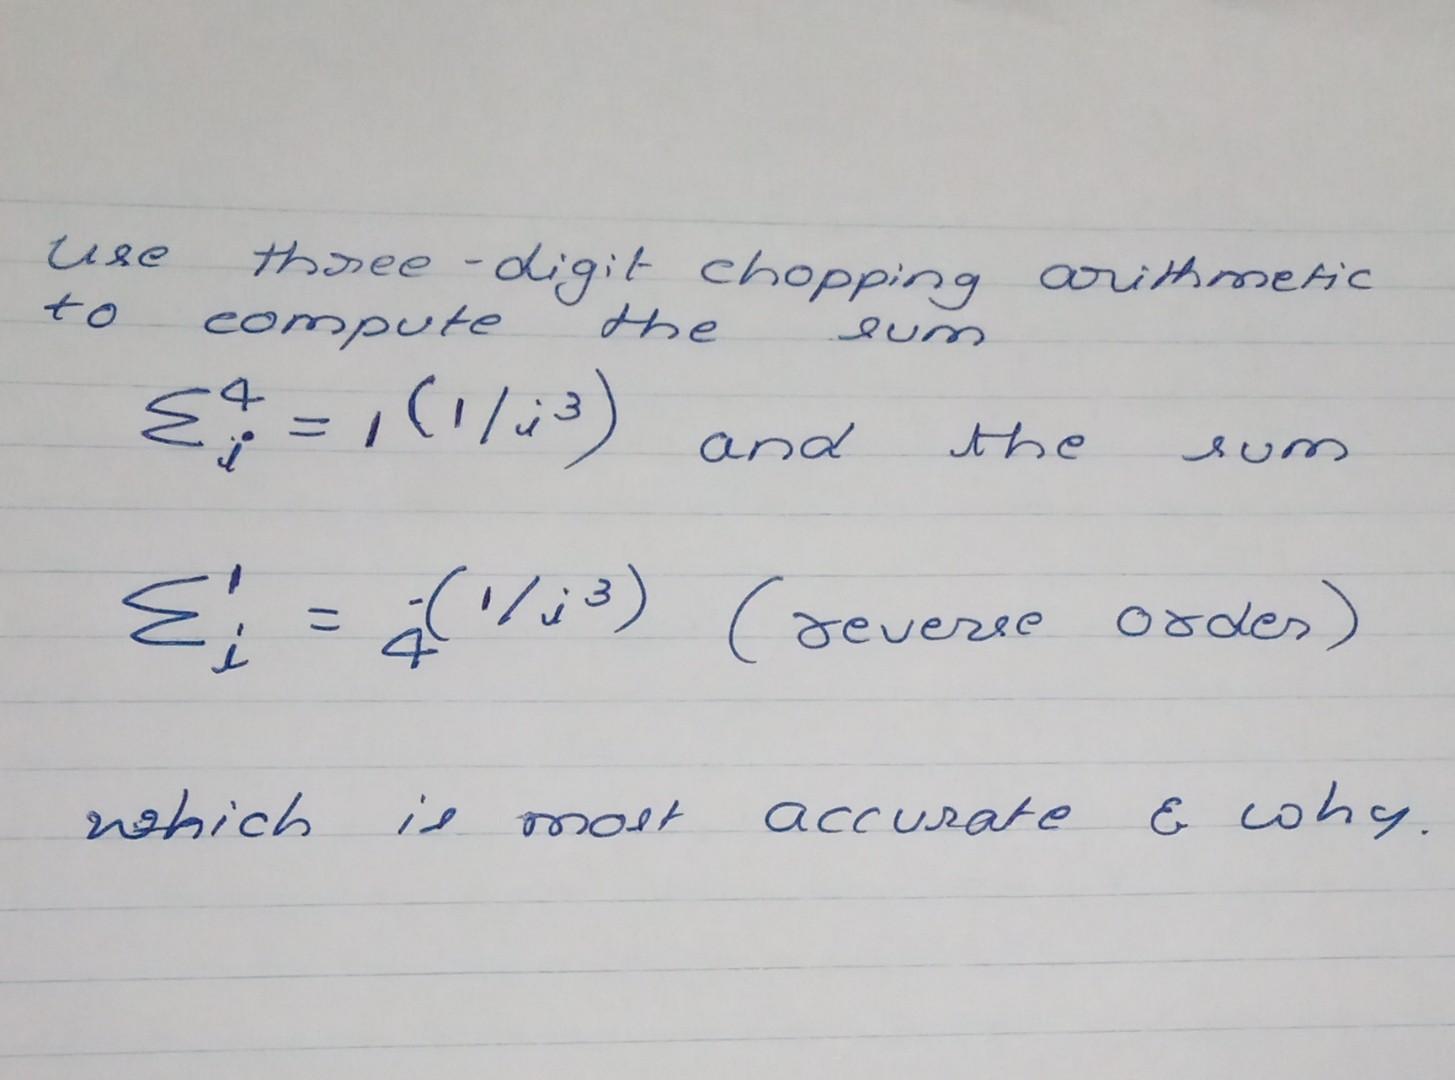 Use three-digit chopping arithmetic
to compute the sum
Σ⁴ᵢ = ₁(1/i³) and the sum
Σ¹ᵢ = ₄(1/i³) (reverse order)
which is most accurate & why.